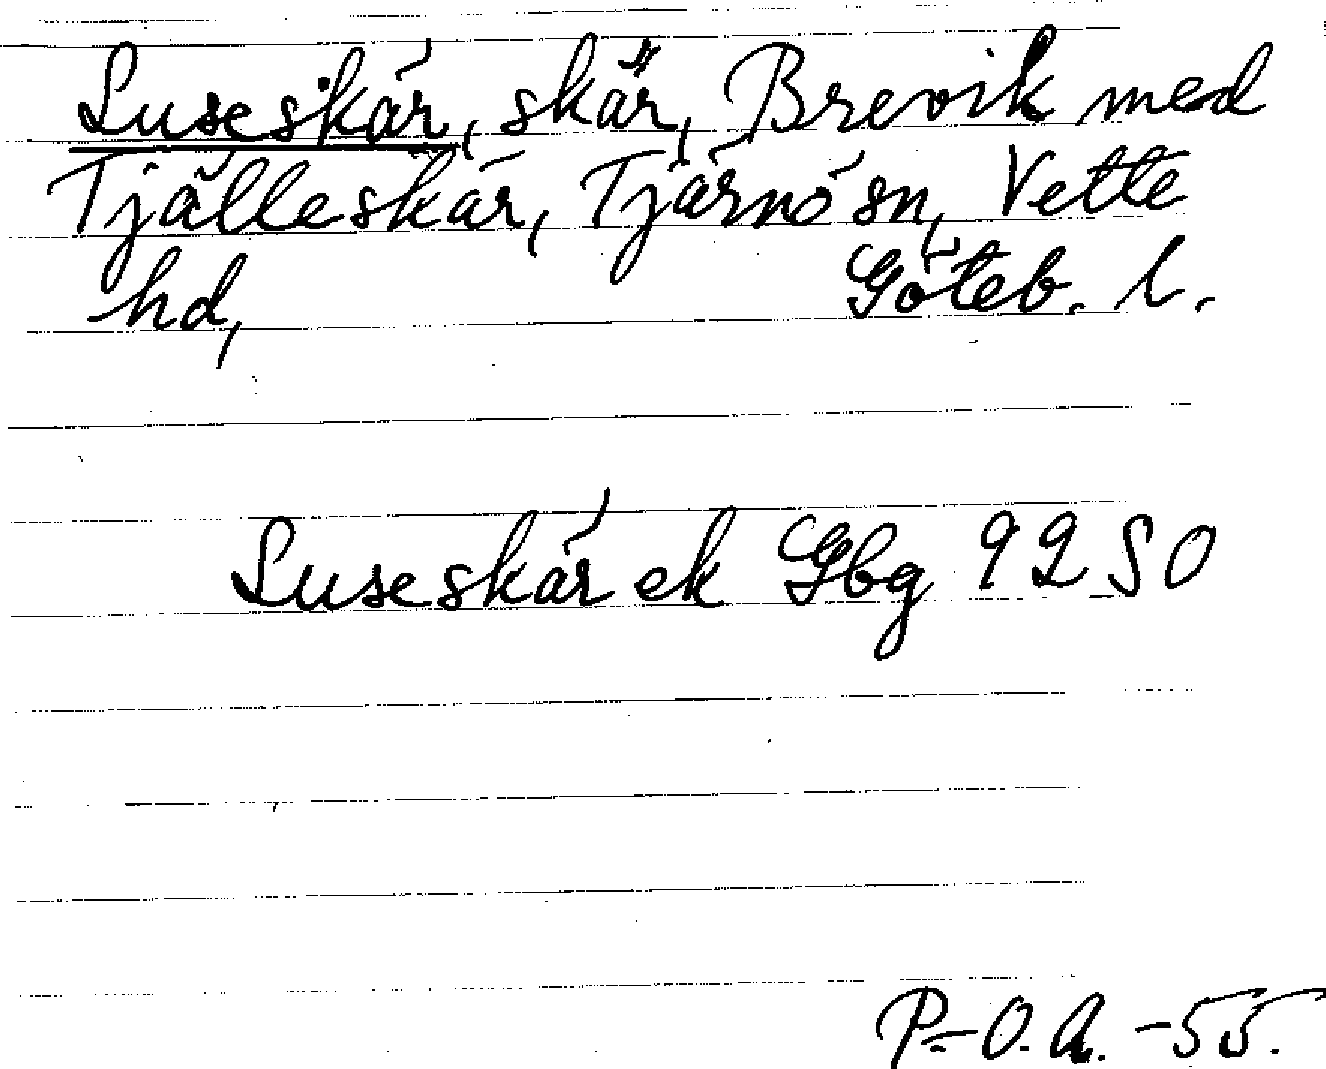 Luseskär, skär, Brevik med
Tjälleskär, Tjärnö sn, Vette
hd, Göteb. l.
Luseskär ek Gbg 9250
P-O.A. -55.